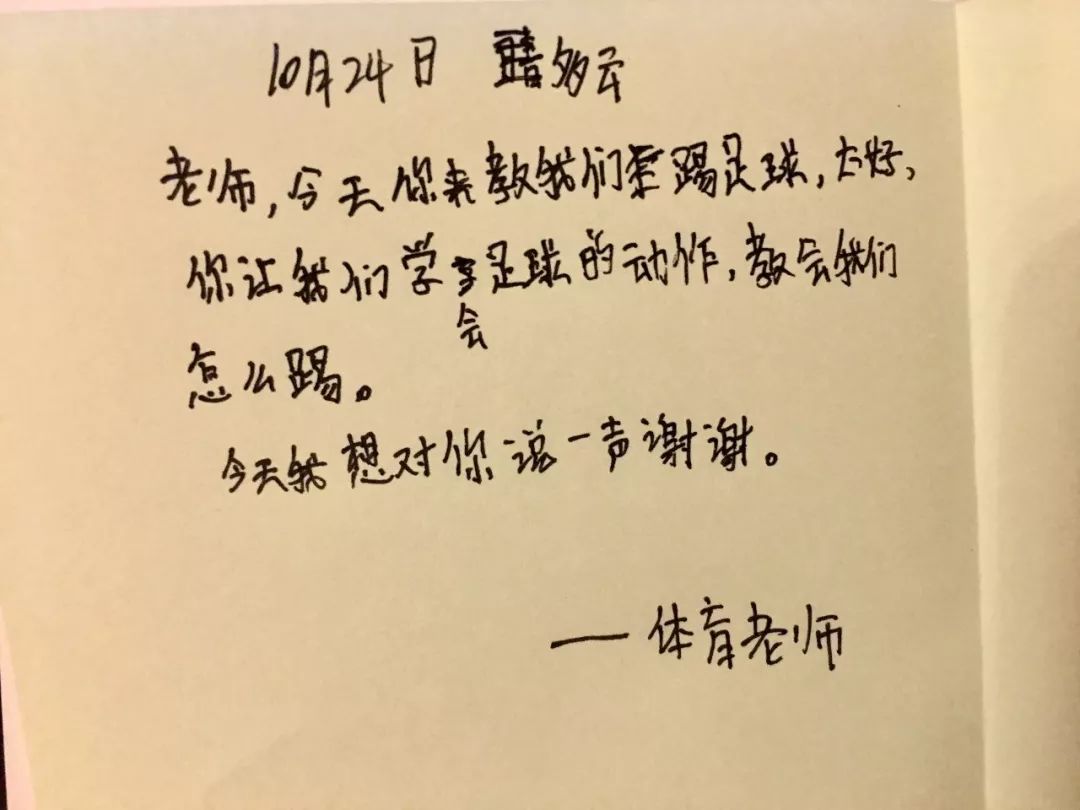 10月24日 多云
老师,今天你来教我们踢足球,太好,
你让我们学会足球的动作,教会我们
怎么踢。
今天我想对你说一声谢谢。
——体育老师